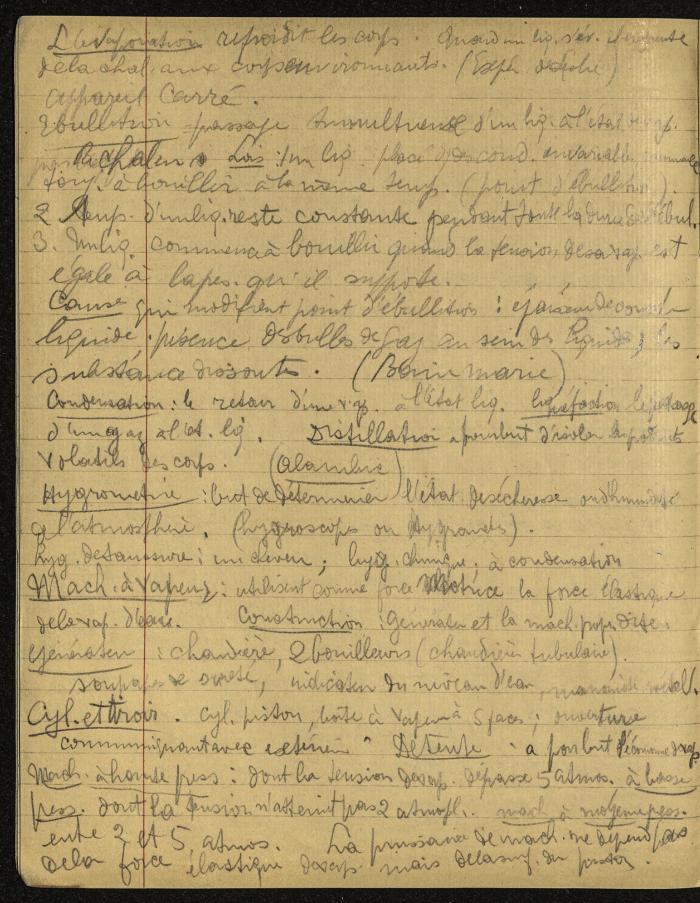 L'évaporation refroidit les corps. Quand un liq. s'év. il emprunte
de la chal. aux corps environnants. (Exp. de Leslie)
appareil Carré.
Ebullition passage tumultueux d'un liq. à l'état de vap.
par la chaleur Lois : 1 un liq. placé ds cond. invariables
à bouillir à la même temp. (point d'ébullition).
2 Temp. d'un liq. reste constante pendant toute la durée de l'ébul.
3. Un liq. commence à bouillir quand la tension de sa vap. est
égale à la pes. qu'il suppote.
Causes qui modifient point d'ébullition :
liquide. présence des bulles de gaz au sein du liquide ; les
substances dissoutes. (Bain marie)
Condensation : le retour d'une vap. à l'état liq. liquéfaction le passage
d'un gaz à l'ét. liq. Distillation a pour but d'isoler les produits
volatils des corps. (alambic)
Hygrométrie : but de déterminer l'état de sécheresse ou d'humidité
de l'atmosphère. (hygroscopes ou hygromèts).
hyg. de Saussure : un cheveu ; hyg. chimique, à condensation
Mach. à vapeur : utilisent comme force motrice la force élastique
de la vap. d'eau. Construction : générateur et la mach. prop. dite.
Générateur : chaudière, 2 bouilleurs (chaudière tubulaire).
soupapes de sûreté, indicateur du niveau d'eau, manomètre métal.
Cyl. et tiroir. cyl. piston, boîte à vapeur à 5 faces ; ouverture
communiquant avec extérieur Détente : a pour but l'économie de vap.
Mach. à haute press : dont la tension de vap. dépasse 5 atmos. à basse
press. dont la tension n'atteint pas 2 atmosph. mach à moyenne press.
entre 2 et 5 atmos. La puissance de mach. ne dépend pas
de la force élastique de vap. mais de la surf. du piston.